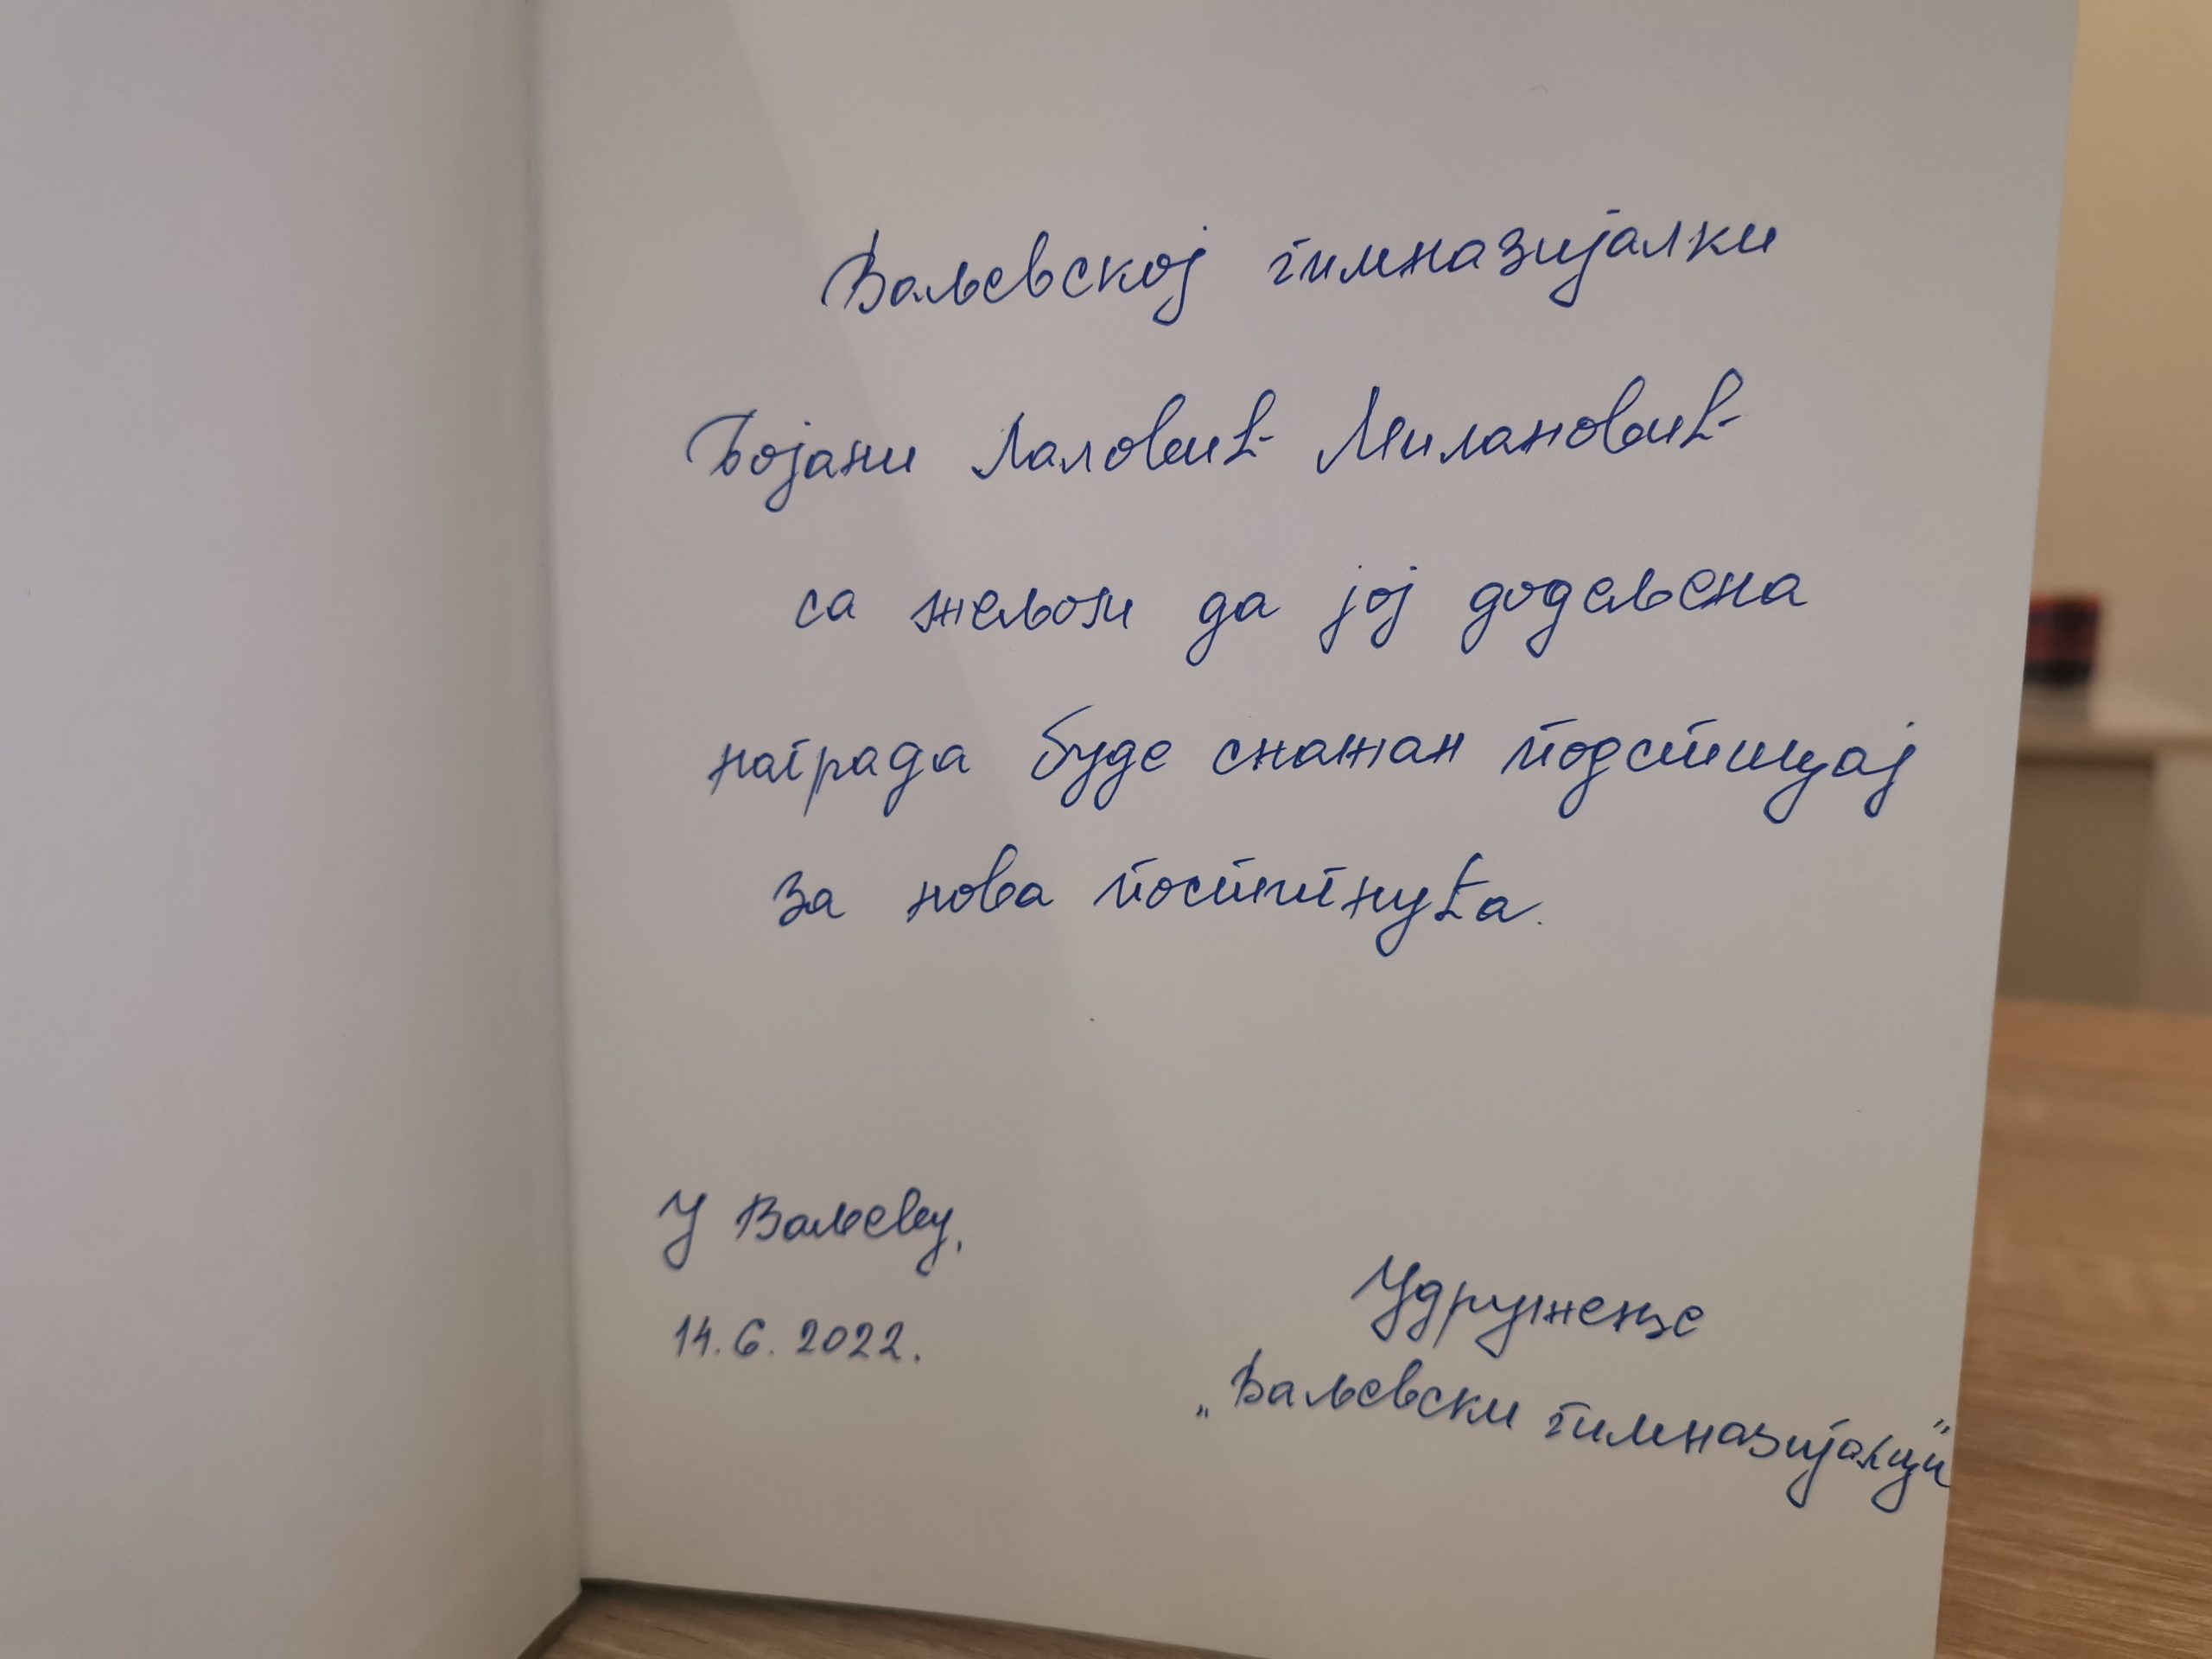 Ваљевској гимназијалки
Бојани Лаловић Милановић
са жељом да јој додељена
награда буде снажан подстицај
за нова постигнућа.
У Ваљеву,
14.6.2022.
Удружење
„Ваљевски гимназијалци"